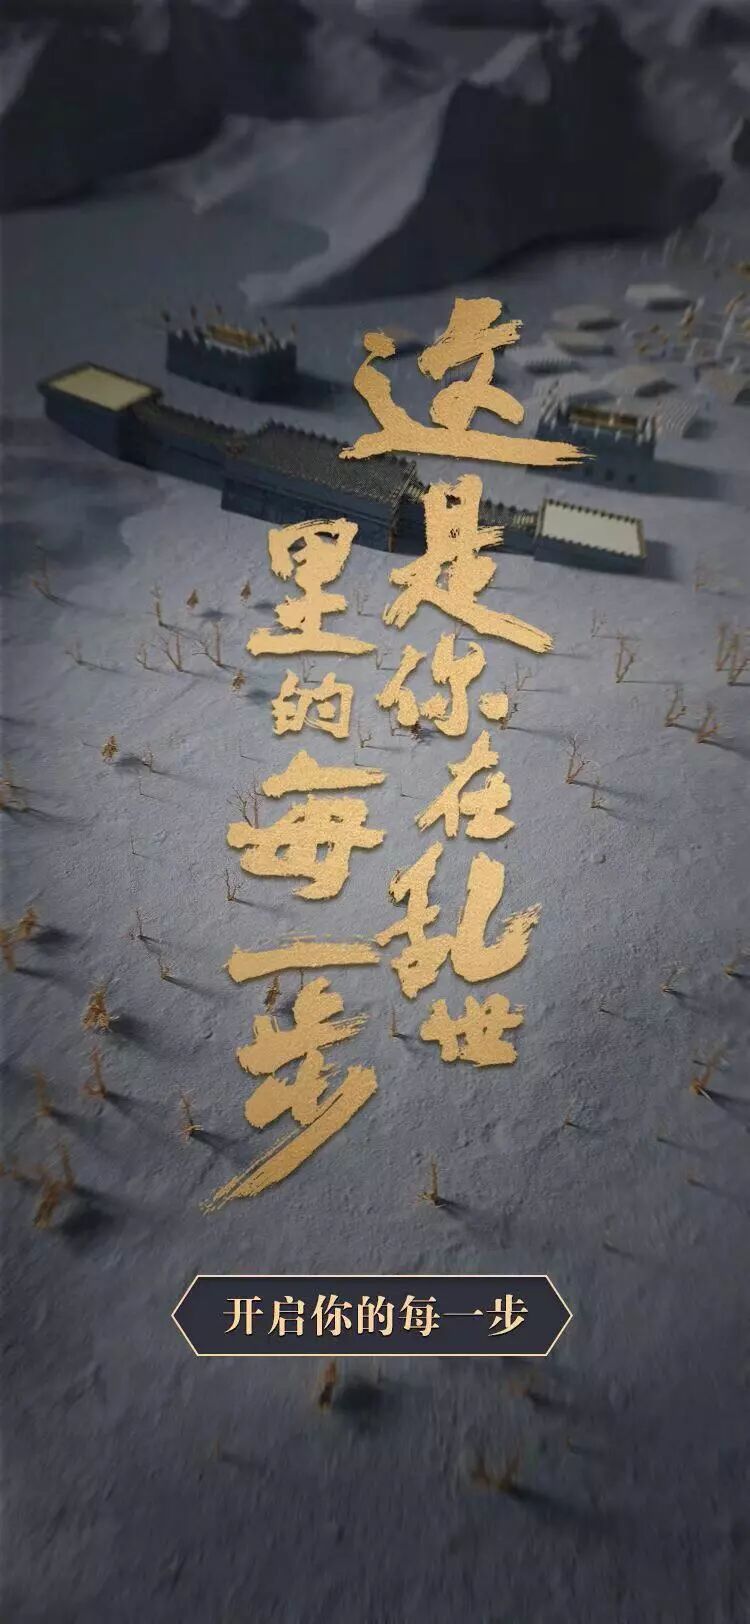 这是你在乱世
里的每一步
开启你的每一步